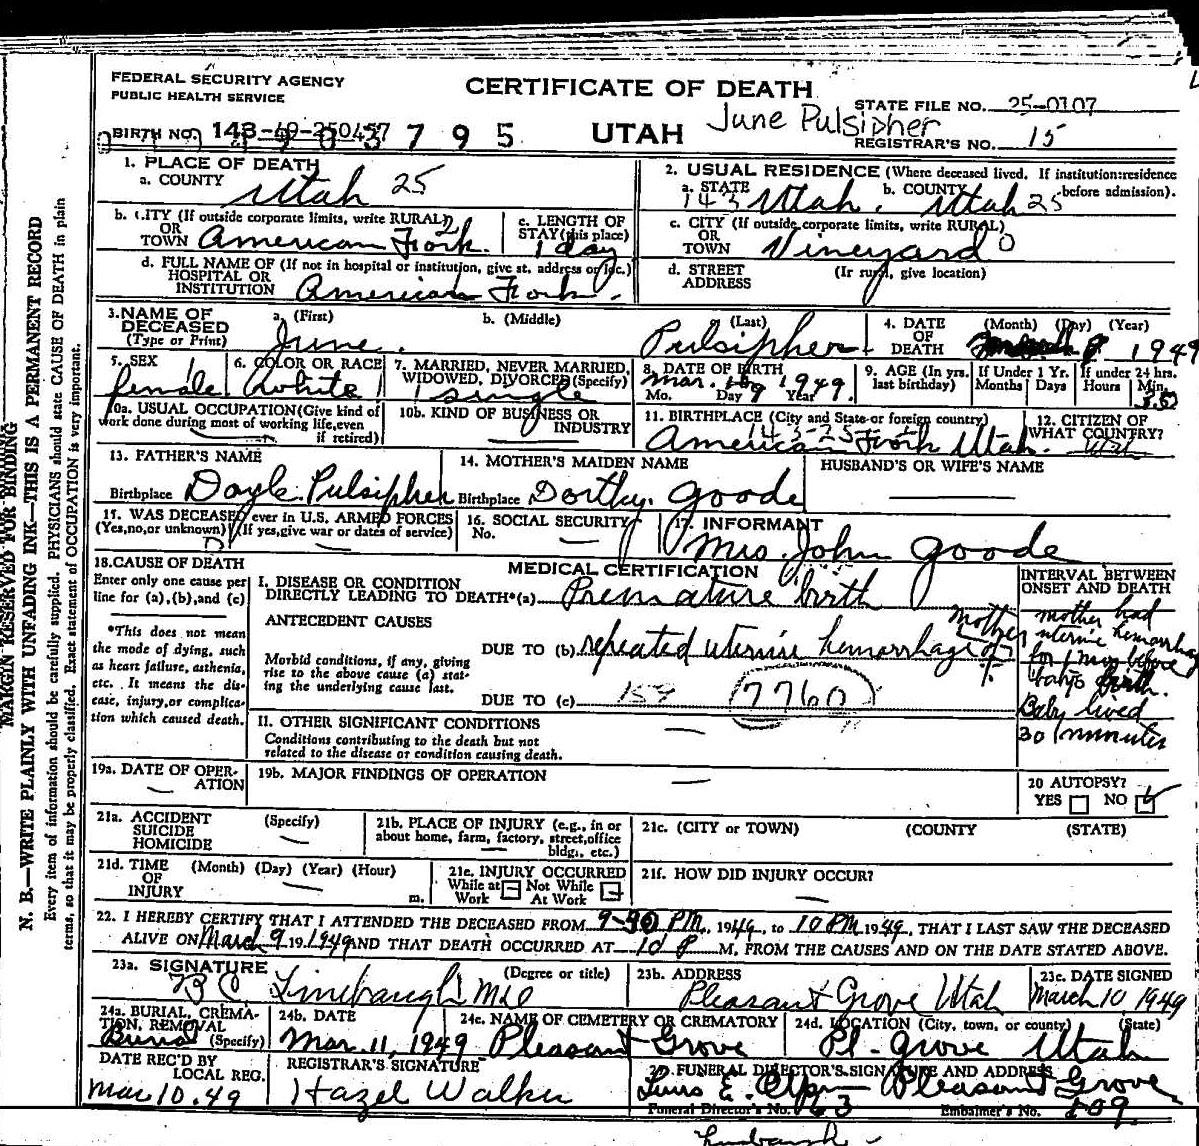 FEDERAL SECURITY AGENCY
PUBLIC HEALTH SERVICE
CERTIFICATE OF DEATH
June Pulsipher
STATE FILE NO. 25-0107
BIRTH NO. 143-49-250457
3795
UTAH
REGISTRAR'S NO. 15
1. PLACE OF DEATH
a. COUNTY Utah 25
2. USUAL RESIDENCE (Where deceased lived. If institution: residence before admission).
a. STATE 143 Utah. b. COUNTY Utah 25
b. CITY (If outside corporate limits, write RURAL)
OR
TOWN American Fork.
c. LENGTH OF STAY (this place) 1 day
c. CITY (If outside corporate limits, write RURAL)
OR
TOWN Vineyard 0
d. FULL NAME OF (If not in hospital or institution, give st. address or loc.)
HOSPITAL OR
INSTITUTION American Fork.
d. STREET ADDRESS (If rural, give location)
3. NAME OF DECEASED (Type or Print)
a. (First) June.
b. (Middle)
(Last) Pulsipher
4. DATE OF DEATH (Month) (Day) (Year) 9 1949
5. SEX female 1
6. COLOR OR RACE white 1
7. MARRIED, NEVER MARRIED, WIDOWED, DIVORCED (Specify) 1 single
8. DATE OF BIRTH Mar. 9 1949.
Mo. Day Year
9. AGE (In yrs. last birthday)
If Under 1 Yr. Months Days
If under 24 hrs. Hours Min.
10a. USUAL OCCUPATION (Give kind of work done during most of working life, even if retired)
10b. KIND OF BUSINESS OR INDUSTRY
11. BIRTHPLACE (City and State or foreign country)
143-25
American Fork Utah.
12. CITIZEN OF WHAT COUNTRY?
13. FATHER'S NAME
Birthplace Doyle Pulsipher
14. MOTHER'S MAIDEN NAME
Birthplace Dorthy. Goode
HUSBAND'S OR WIFE'S NAME
15. WAS DECEASED ever in U.S. ARMED FORCES
(Yes, no, or unknown) (If yes, give war or dates of service)
16. SOCIAL SECURITY No.
17. INFORMANT
Mrs. John Goode
18. CAUSE OF DEATH
Enter only one cause per line for (a), (b), and (c)
*This does not mean the mode of dying, such as heart failure, asthenia, etc. It means the disease, injury, or complication which caused death.
MEDICAL CERTIFICATION
I. DISEASE OR CONDITION DIRECTLY LEADING TO DEATH* (a) Premature birth
ANTECEDENT CAUSES
Morbid conditions, if any, giving rise to the above cause (a) stating the underlying cause last.
DUE TO (b) repeated uterine hemorrhage of mother
DUE TO (c) 159 7760
INTERVAL BETWEEN ONSET AND DEATH
mother had
uterine hemorrhage
for 1 mos before
birth.
Baby lived
30 minutes
II. OTHER SIGNIFICANT CONDITIONS
Conditions contributing to the death but not related to the disease or condition causing death.
19a. DATE OF OPERATION
19b. MAJOR FINDINGS OF OPERATION
20 AUTOPSY?
YES NO
21a. ACCIDENT SUICIDE HOMICIDE (Specify)
21b. PLACE OF INJURY (e.g., in or about home, farm, factory, street, office bldg., etc.)
21c. (CITY or TOWN) (COUNTY) (STATE)
21d. TIME OF INJURY (Month) (Day) (Year) (Hour) m.
21e. INJURY OCCURRED
While at Work Not While At Work
21f. HOW DID INJURY OCCUR?
22. I HEREBY CERTIFY THAT I ATTENDED THE DECEASED FROM PM, 1949, to 10 PM 1949, THAT I LAST SAW THE DECEASED
ALIVE ON March 9 19 1949 AND THAT DEATH OCCURRED AT 10 P M, FROM THE CAUSES AND ON THE DATE STATED ABOVE.
23a. SIGNATURE (Degree or title)
Linebaugh MD
23b. ADDRESS
Pleasant Grove Utah
23c. DATE SIGNED
March 10 1949
24a. BURIAL, CREMATION, REMOVAL (Specify) Burial
24b. DATE
Mar. 11, 1949
24c. NAME OF CEMETERY OR CREMATORY
Pleasant Grove
24d. LOCATION (City, town, or county) (State)
Pl. Grove Utah
DATE REC'D BY LOCAL REG.
Mar 10. 49
REGISTRAR'S SIGNATURE
Hazel Walker
25. FUNERAL DIRECTOR'S SIGNATURE AND ADDRESS
Pleasant Grove
Funeral Director's No. Embalmer's No.
MARGIN RESERVED FOR BINDING
N. B.—WRITE PLAINLY WITH UNFADING INK—THIS IS A PERMANENT RECORD
Every item of information should be carefully supplied. PHYSICIANS should state CAUSE OF DEATH in plain
terms, so that it may be properly classified. Exact statement of OCCUPATION is very important.